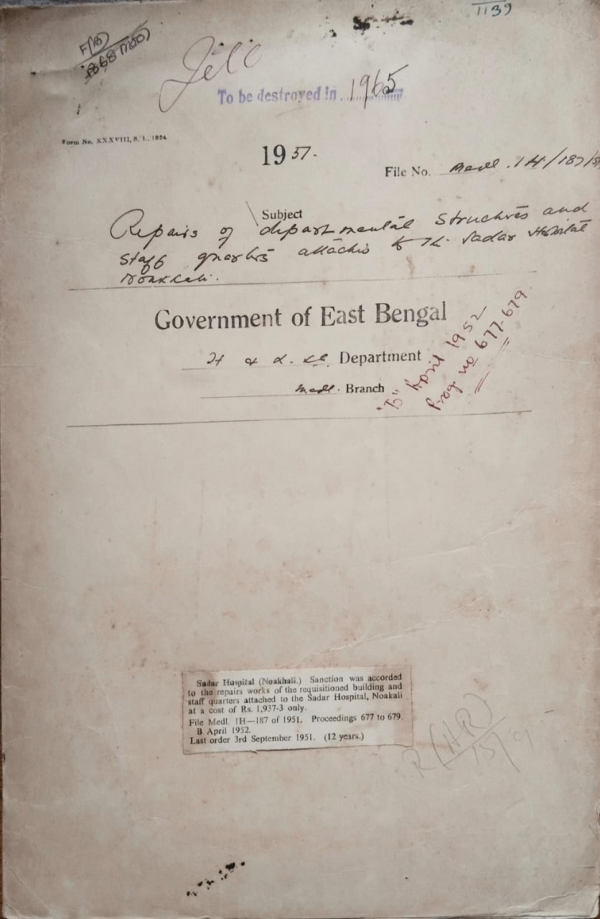 1139
F(B)
To be destroyed in 1965
Form No. XXXVIII, S. I., 1924.
1951.
File No. Medl. 1H/187/51
Subject
Repairs of departmental structures and
staff quarters attached to the Sadar Hospital
Noakhali.
Government of East Bengal
H & L. S.G. Department
Medl. Branch
"B" April 1952
Prog no 677-679
Sadar Hospital (Noakhali.) Sanction was accorded
to the repairs works of the requisitioned building and
staff quarters attached to the Sadar Hospital, Noakali
at a cost of Rs. 1,937-3 only.
File Medl. 1H—187 of 1951. Proceedings 677 to 679.
B April 1952.
Last order 3rd September 1951. (12 years.)
R(HR)